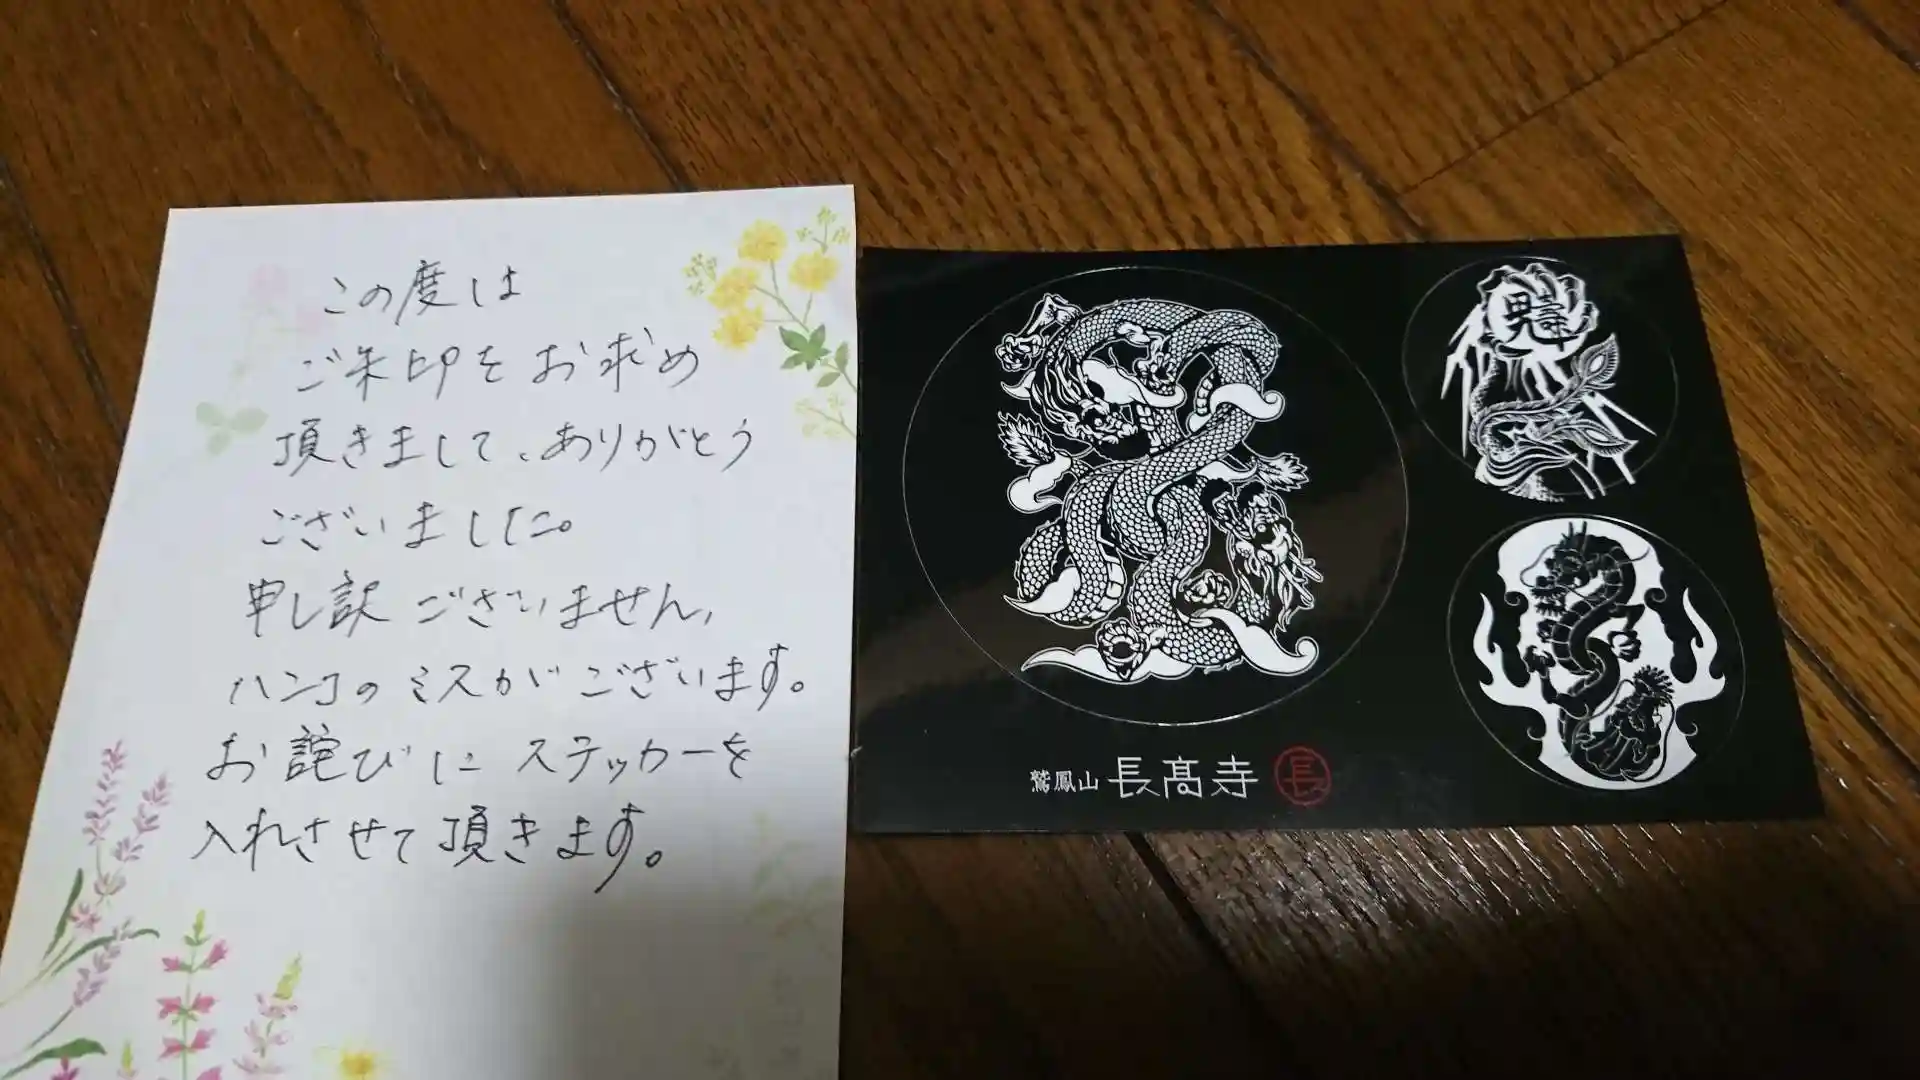 この度は
ご朱印をお求め
頂きまして、ありがとう
ございました。
申し訳ございません、
ハンコのミスがございます。
お詫びにステッカーを
入れさせて頂きます。
鷲鳳山 長髙寺 長